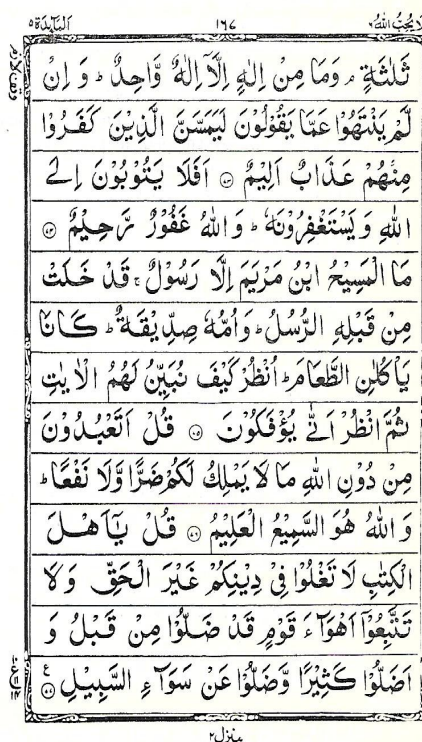 لا یحب الله ٦ ١٦٧ المآئدة ٥
ثَلٰثَةٍ ۘ وَمَا مِنْ اِلٰهٍ اِلَّاۤ اِلٰهٌ وَّاحِدٌ ؕ وَ اِنْ
لَّمْ یَنْتَهُوْا عَمَّا یَقُوْلُوْنَ لَیَمَسَّنَّ الَّذِیْنَ كَفَرُوْا
مِنْهُمْ عَذَابٌ اَلِیْمٌ ۝ اَفَلَا یَتُوْبُوْنَ اِلَی
اللّٰهِ وَیَسْتَغْفِرُوْنَهٗ ؕ وَاللّٰهُ غَفُوْرٌ رَّحِیْمٌ ۝
مَا الْمَسِیْحُ ابْنُ مَرْیَمَ اِلَّا رَسُوْلٌ ۚ قَدْ خَلَتْ
مِنْ قَبْلِهِ الرُّسُلُ ؕ وَاُمُّهٗ صِدِّیْقَةٌ ؕ كَانَا
یَاْكُلٰنِ الطَّعَامَ ؕ اُنْظُرْ كَیْفَ نُبَیِّنُ لَهُمُ الْاٰیٰتِ
ثُمَّ انْظُرْ اَنّٰی یُؤْفَكُوْنَ ۝ قُلْ اَتَعْبُدُوْنَ
مِنْ دُوْنِ اللّٰهِ مَا لَا یَمْلِكُ لَكُمْ ضَرًّا وَّلَا نَفْعًا ؕ
وَاللّٰهُ هُوَ السَّمِیْعُ الْعَلِیْمُ ۝ قُلْ یٰۤاَهْلَ
الْكِتٰبِ لَا تَغْلُوْا فِیْ دِیْنِكُمْ غَیْرَ الْحَقِّ وَلَا
تَتَّبِعُوْۤا اَهْوَآءَ قَوْمٍ قَدْ ضَلُّوْا مِنْ قَبْلُ وَ
اَضَلُّوْا كَثِیْرًا وَّضَلُّوْا عَنْ سَوَآءِ السَّبِیْلِ ۝ ع
منزل ٢